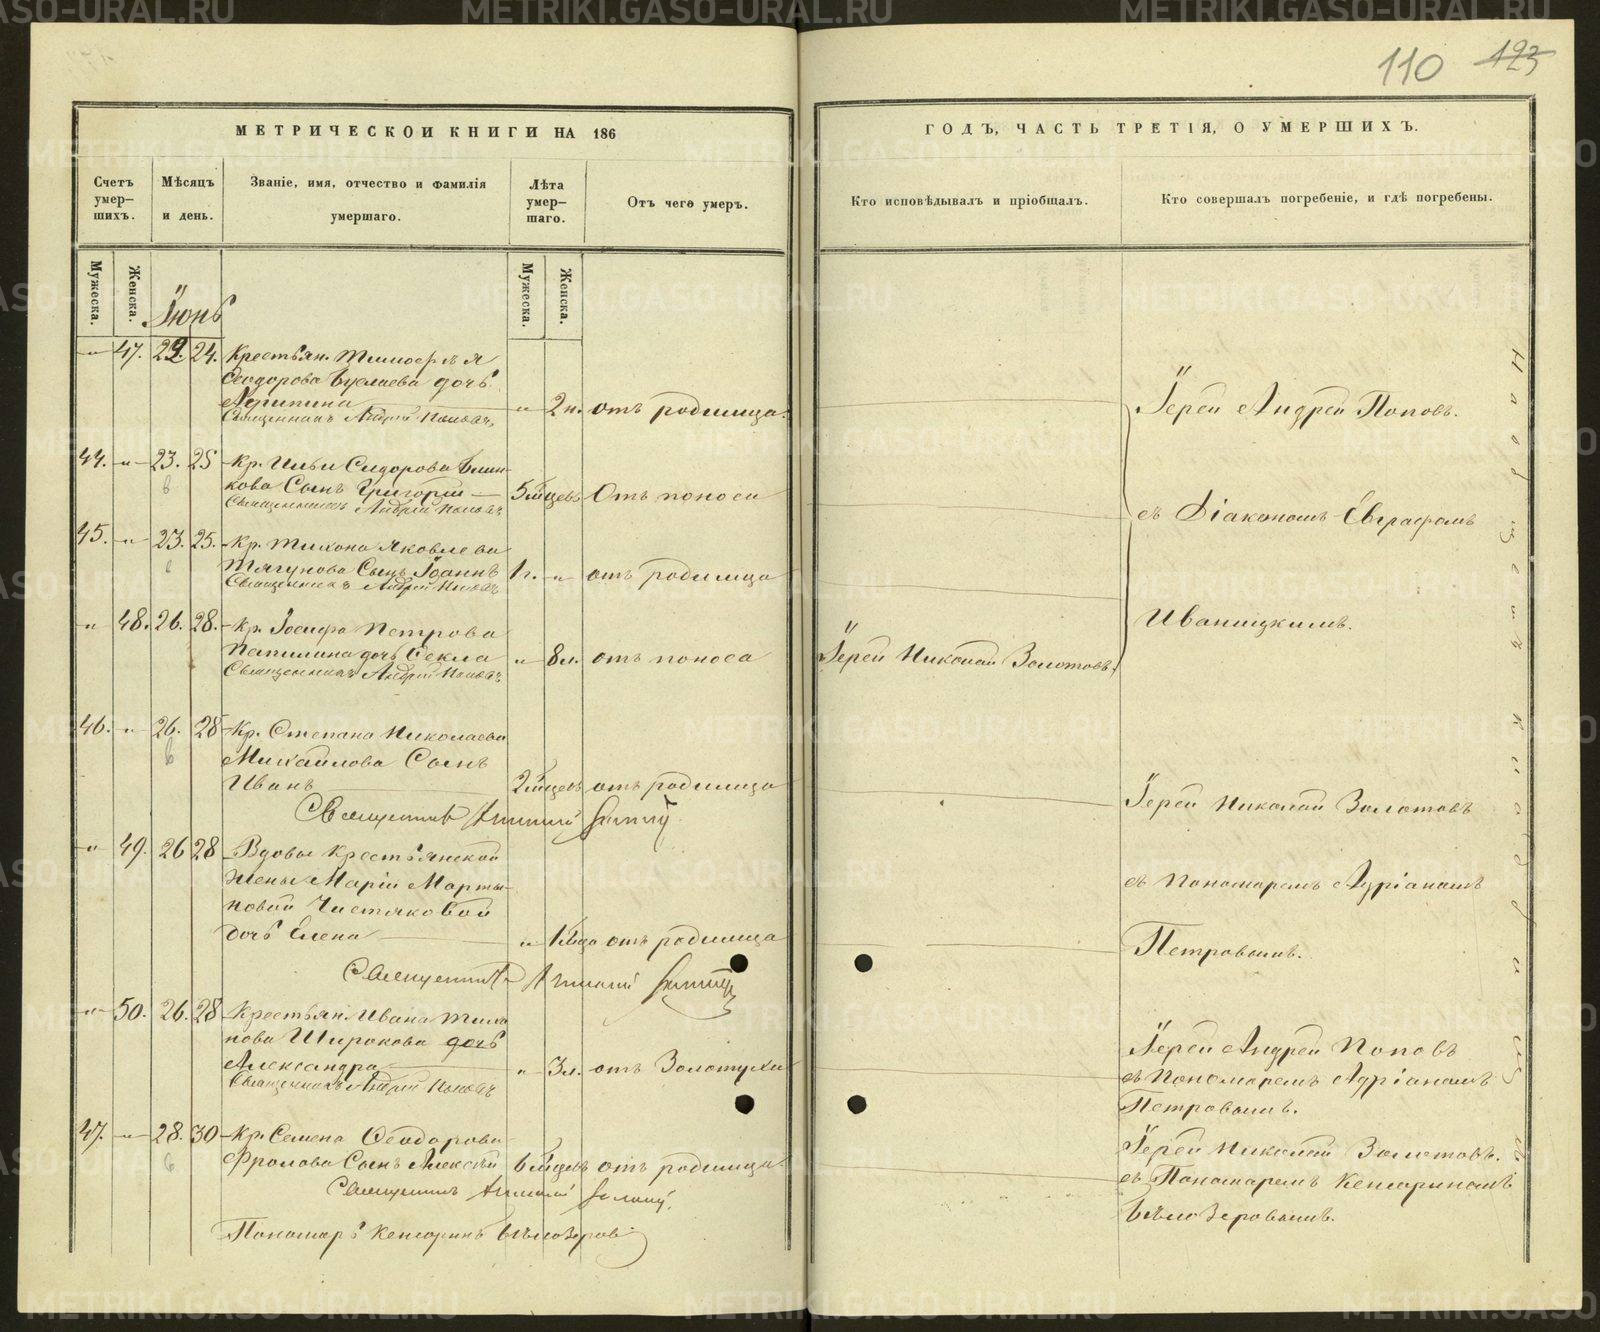 110 123
МЕТРИЧЕСКОЙ КНИГИ НА 186
Счетъ умер–шихъ.
Мѣсяцъ и день.
Званіе, имя, отчество и фамилія умершаго.
Лѣта умер–шаго.
Отъ чего умеръ.
Мужеска.
Женска.
Мужеска.
Женска.
Іюнь
" 47. 22. 24. Крестьян. Тимофея
Ѳеодорова дочь
Агрипина " 2 н. отъ родимца.
Священникъ Андрей Поповъ
44. " 23. 25 Кр. Ильи Сидорова Блин-
кова Сынъ Григорій 5 мцевъ Отъ поноса
Священникъ Андрей Поповъ
45. " 23. 25. Кр. Тихона Яковлева
Тягунова Сынъ Іоаннъ 1 г. " отъ родимца
Священникъ Андрей Поповъ
" 48. 26. 28. Кр. Іосифа Петрова
дочь Ѳекла " 8 л. отъ поноса
Священникъ Андрей Поповъ
46. " 26. 28 Кр. Степана Николаева
Михайлова Сынъ
Иванъ 2 мцевъ отъ родимца
Священникъ
" 49. 26 28 Вдовы крестьянской
жены Маріи Марты-
новой Чистяковой
дочь Елена " 1 мца отъ родимца
Священникъ
" 50. 26. 28 Крестьян. Ивана
Широкова дочь
Александра " 3 л. отъ Золотухи
Священникъ Андрей Поповъ
47. " 28. 30 Кр. Семена Ѳеодорова
Фролова Сынъ Алексѣй 6 мцевъ отъ родимца
Священникъ
Пономарь Кенсоринъ Бѣлозеровъ
ГОДЪ, ЧАСТЬ ТРЕТІЯ, О УМЕРШИХЪ.
Кто исповѣдывалъ и пріобщалъ.
Кто совершалъ погребеніе, и гдѣ погребены.
Іерей Андрей Поповъ.
съ Діакономъ Евграфомъ
Иваницкимъ.
Іерей Николай Золотовъ.
Іерей Николай Золотовъ
съ Пономаремъ Адріаномъ
Петровымъ.
Іерей Андрей Поповъ
съ Пономаремъ Адріаномъ
Петровымъ.
Іерей Николай Золотовъ.
съ Пономаремъ Кенсориномъ
Бѣлозеровымъ.
METRIKI.GASO-URAL.RU